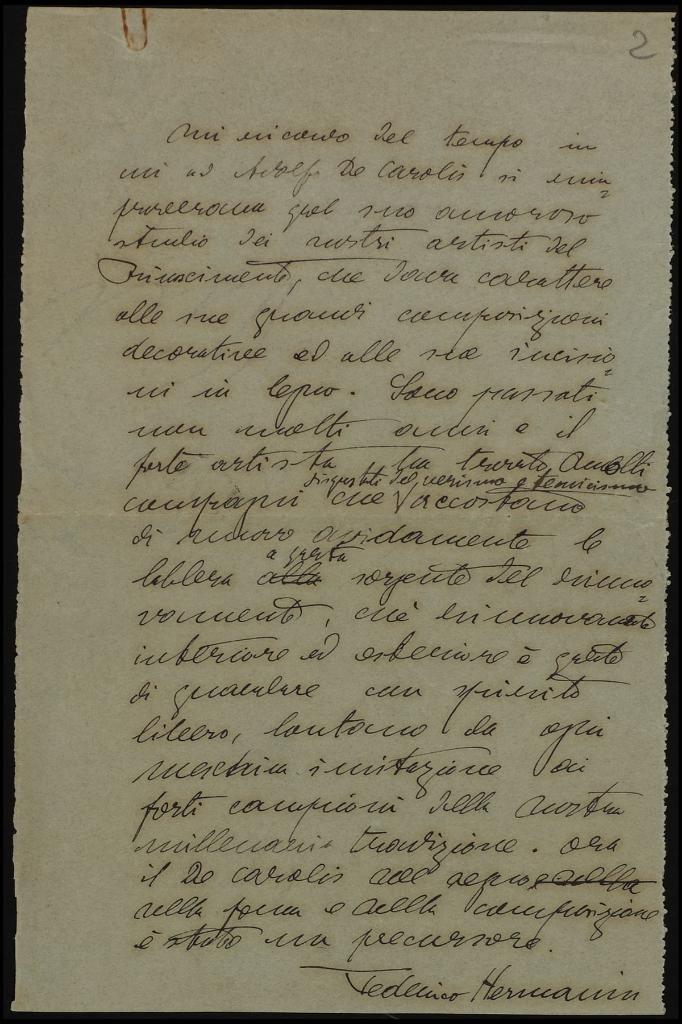 2
Mi ricordo del tempo in
cui ad Adolfo De Carolis si rim=
proverava quel suo amoroso
studio dei nostri artisti del
Rinascimento, che dava carattere
alle sue grandi composizioni
decorative ed alle sue incisio=
ni in legno. Sono passati
non molti anni e il
forte artista ha trovato molti
disgustati del verismo e tecnicismo
compagni che accostano
di nuovo avidamente le
a questa
labbra alla sorgente del rinno=
vamento, chè rinnovamento
interiore ed esteriore è questo
di guardare con spirito
libero, lontano da ogni
meschina imitazione ai
forti campioni della nostra
millenaria tradizione. Ora
il De Carolis nel segno e nella
nella forma e nella composizione
è stato un precursore.
Federico Hermanin